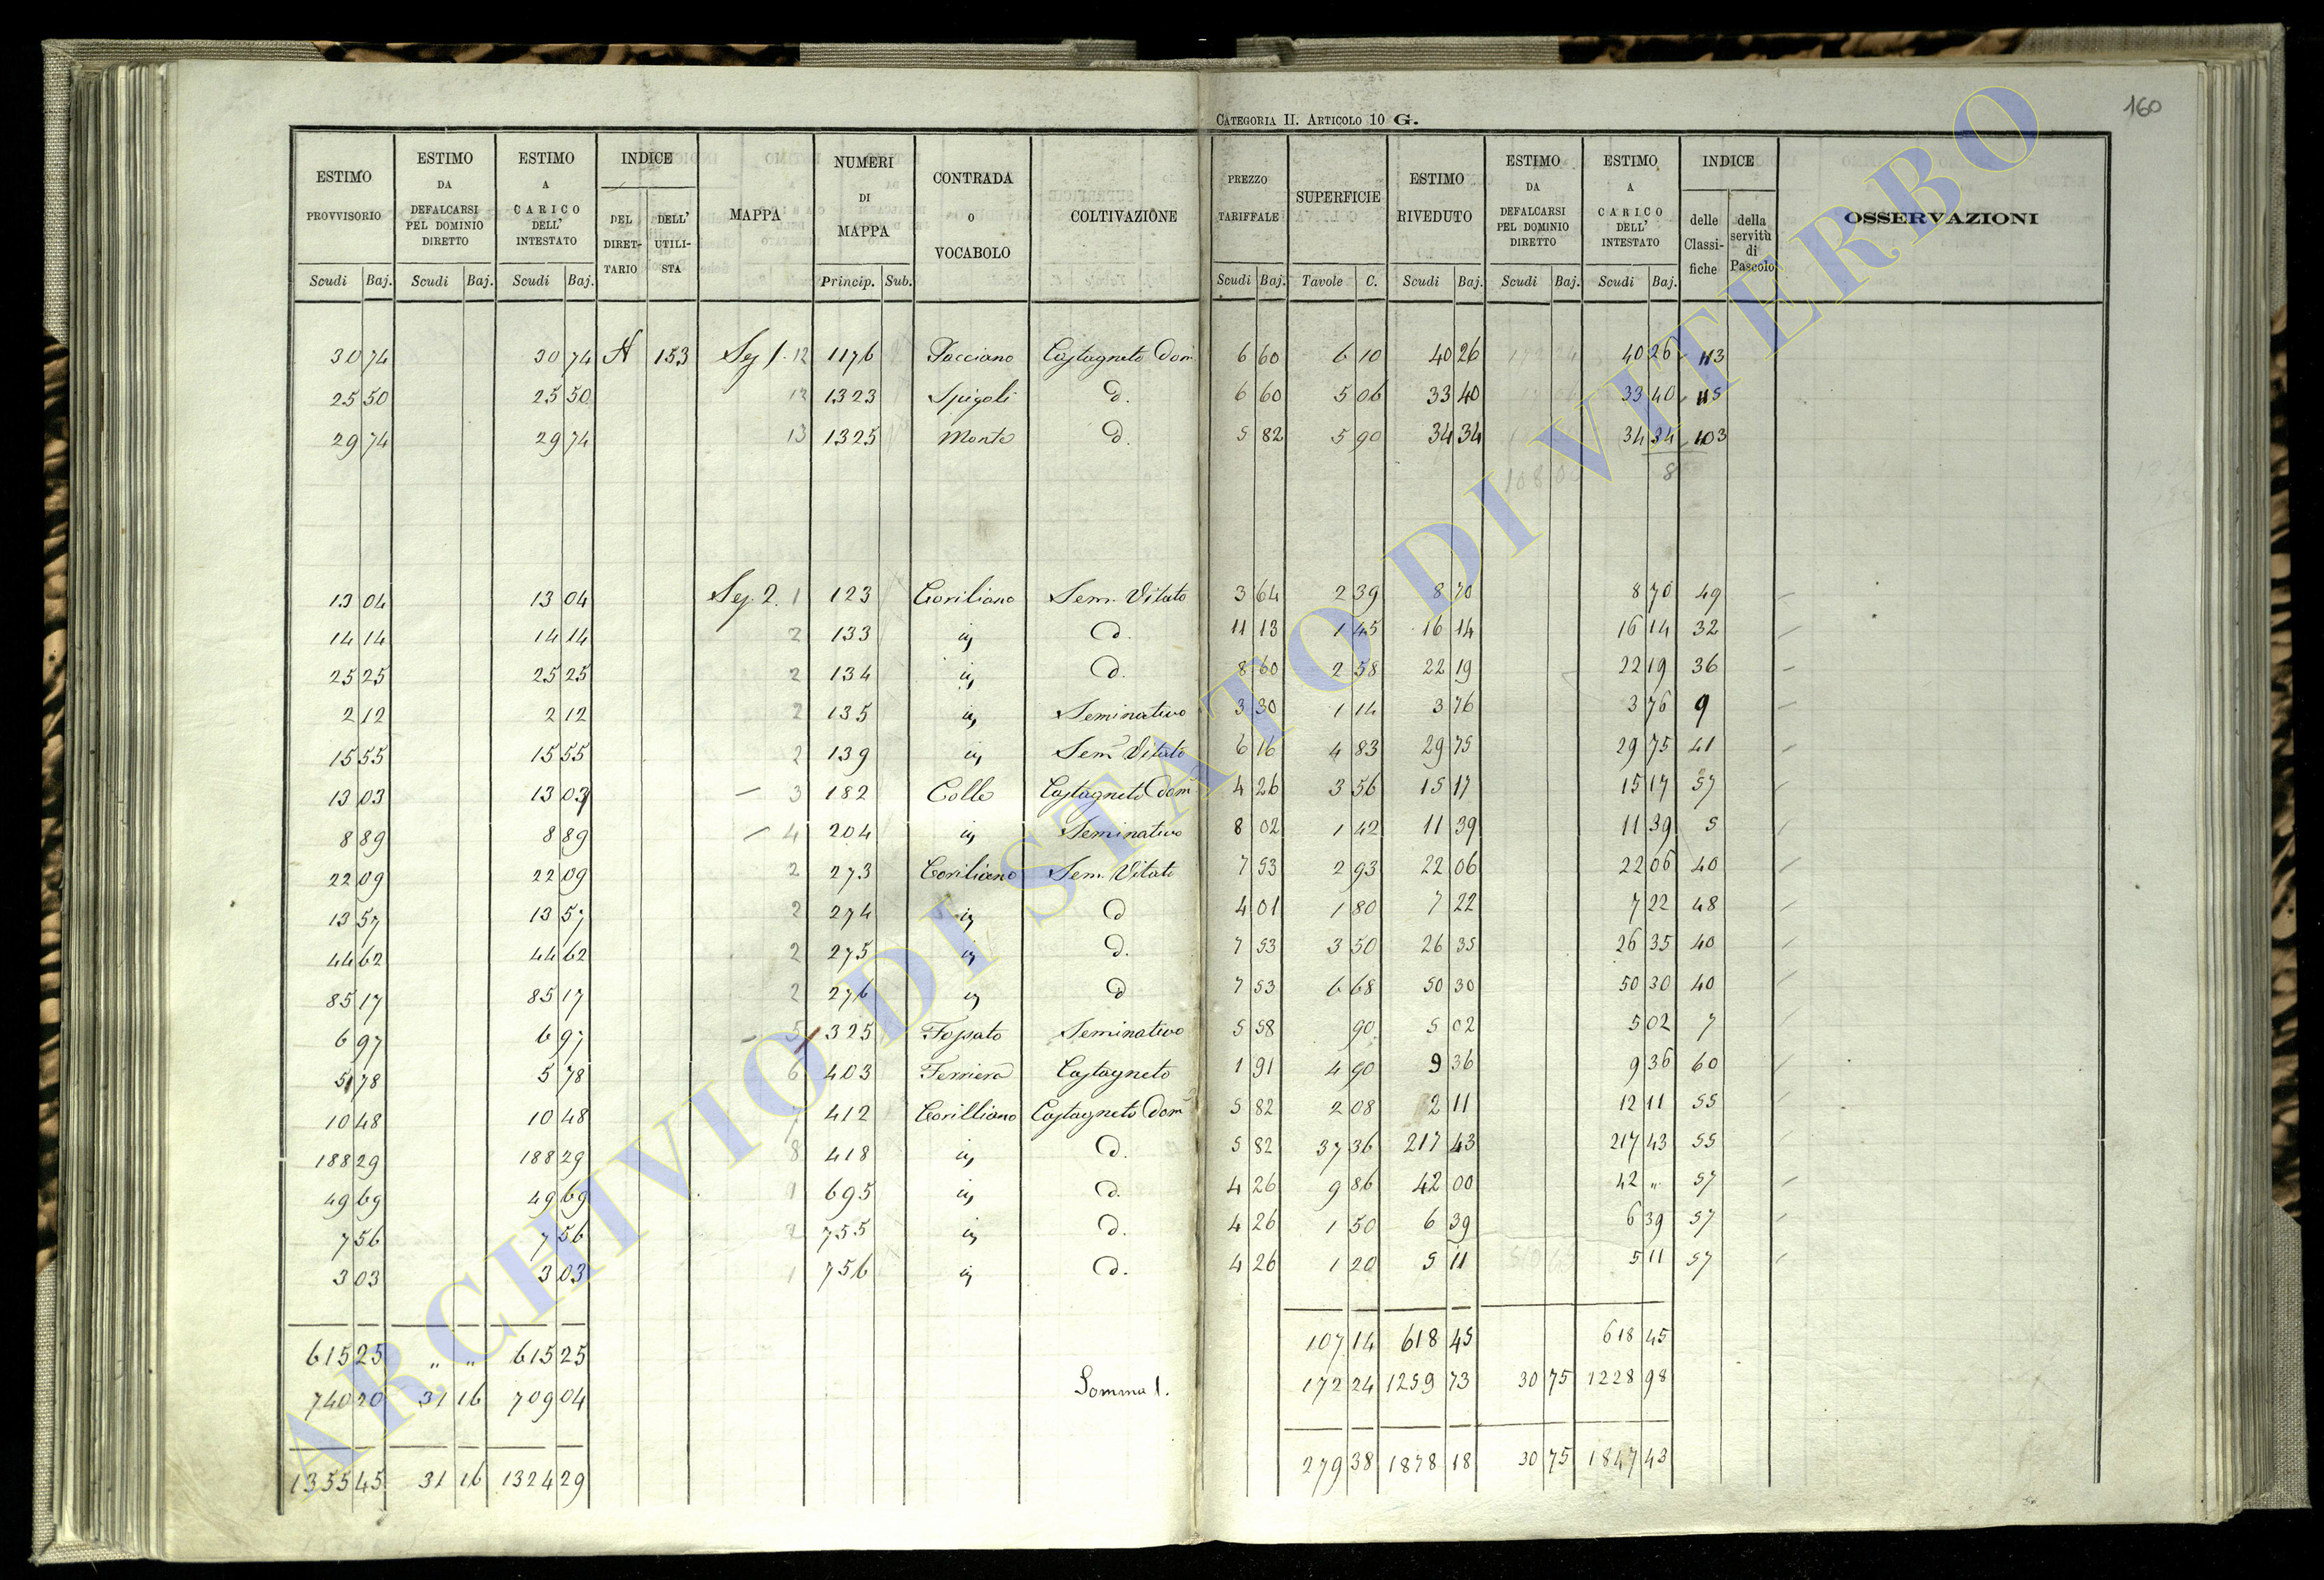 160
CATEGORIA II. ARTICOLO 10 G.
ESTIMO PROVVISORIO Scudi Baj. | ESTIMO DA DEFALCARSI PEL DOMINIO DIRETTO Scudi Baj. | ESTIMO A CARICO DELL' INTESTATO Scudi Baj. | INDICE DEL DIRETTARIO DELL' UTILISTA | MAPPA | NUMERI DI MAPPA Princip. Sub. | CONTRADA O VOCABOLO | COLTIVAZIONE | PREZZO TARIFFALE Scudi Baj. | SUPERFICIE Tavole C. | ESTIMO RIVEDUTO Scudi Baj. | ESTIMO DA DEFALCARSI PEL DOMINIO DIRETTO Scudi Baj. | ESTIMO A CARICO DELL' INTESTATO Scudi Baj. | INDICE delle Classifiche della servitù di Pascolo | OSSERVAZIONI
30 74 30 74 A 153 Sez 1. 12 1176 Pacciano Castagneto Dom 6 60 6 10 40 26 40 26 113
25 50 25 50 12 1323 Spigoli d. 6 60 5 06 33 40 33 40 115
29 74 29 74 13 1325 Monte d. 5 82 5 90 34 34 34 34 103
108 00 8
13 04 13 04 Sez. 2. 1 123 Coriliano Sem. Vitato 3 64 2 39 8 70 8 70 49
14 14 14 14 2 133 id d. 11 13 1 45 16 14 16 14 32
25 25 25 25 2 134 id d. 8 60 2 58 22 19 22 19 36
2 12 2 12 2 135 id Seminativo 3 30 1 14 3 76 3 76 9
15 55 15 55 2 139 id Sem Vitato 6 16 4 83 29 75 29 75 41
13 03 13 03 3 182 Colle Castagneto Dom 4 26 3 56 15 17 15 17 57
8 89 8 89 4 204 id Seminativo 8 02 1 42 11 39 11 39 5
22 09 22 09 2 273 Coriliano Sem. Vitato 7 53 2 93 22 06 22 06 40
13 57 13 57 2 274 id d 4 01 1 80 7 22 7 22 48
44 62 44 62 2 275 id d. 7 53 3 50 26 35 26 35 40
85 17 85 17 2 276 id d 7 53 6 68 50 30 50 30 40
6 97 6 97 5 325 Fossato Seminativo 5 58 90 5 02 5 02 7
5 78 5 78 6 403 Ferriera Castagneto 1 91 4 90 9 36 9 36 60
10 48 10 48 7 412 Corilliano Castagneto Dom 5 82 2 08 12 11 12 11 55
188 29 188 29 8 418 id d. 5 82 37 36 217 43 217 43 55
49 69 49 69 695 id d. 4 26 9 86 42 00 42 " 57
7 56 7 56 755 id d. 4 26 1 50 6 39 6 39 57
3 03 3 03 756 id d. 4 26 1 20 5 11 5 11 57
615 25 " " 615 25 107 14 618 45 618 45
740 20 31 16 709 04 Somma 1. 172 24 1259 73 30 75 1228 98
1355 45 31 16 1324 29 279 38 1878 18 30 75 1847 43
ARCHIVIO DI STATO DI VITERBO